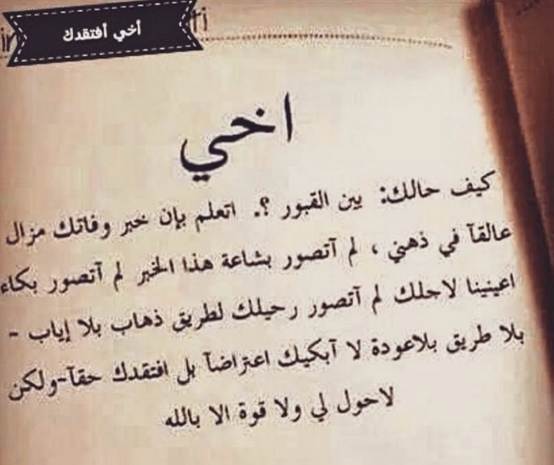 أخي أفتقدك
اخي
كيف حالك: بين القبور ؟. اتعلم بإن خبر وفاتك مزال
عالقآ في ذهني ، لم آتصور بشاعة هذا الخبر لم آتصور بكاء
اعينينا لاجلك لم آتصور رحيلك لطريق ذهاب بلا إياب -
بلا طريق بلاعودة لا آبكيك اعتراضآ بل افتقدك حقآ-ولكن
لاحول لي ولا قوة الا بالله